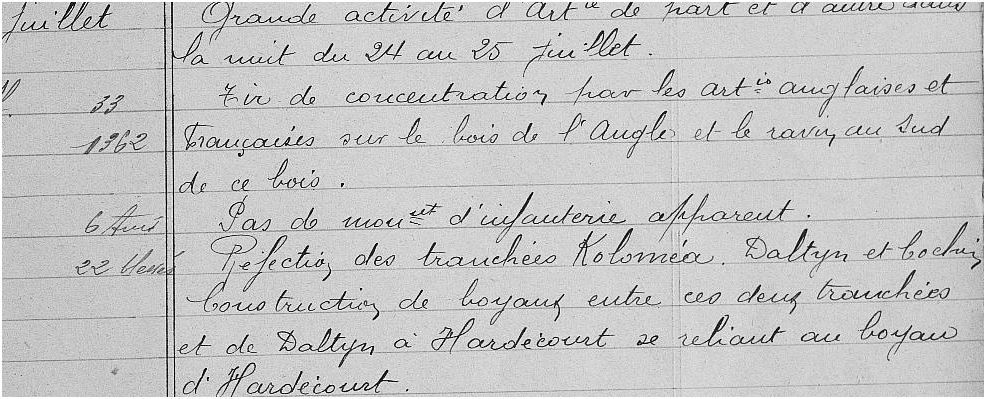 juillet
Grande activité d'Artie de part et d'autre dans
la nuit du 24 au 25 juillet.
33
Tir de concentration par les artis anglaises et
1362
françaises sur le bois de l'Angle et le ravin au sud
de ce bois.
6 tués
Pas de mouvet d'infanterie apparent.
22 blessés
Réfection des tranchées Koloméa, Daltyn et Cochin,
Construction de boyaux entre ces deux tranchées
et de Daltyn à Hardécourt se reliant au boyau
d'Hardécourt.